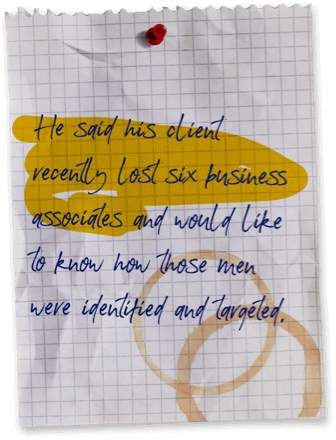 He said his client
recently lost six business
associates and would like
to know how those men
were identified and targeted.